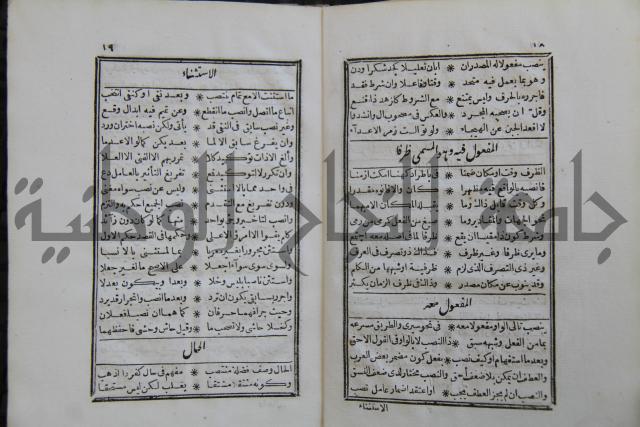 ١٨
ينصب مفعولا له المصدر ان * ابان تعليلا كجد شكرا ودن
وهو بما يعمل فيه متحد * وقتا وفاعلا وان شرط فقد
فاجرره بالحرف وليس يمتنع * مع الشروط كلزهد ذا قنع
وقل ان يصحبه المجرد * والعكس في مصحوب ال وانشدوا
لا اقعد الجبن عن الهيجاء * ولو توالت زمر الاعداء
المفعول فيه وهو المسمى ظرفا
الظرف وقت او مكان ضمنا * في باطراد كهنا امكث ازمنا
فانصبه بالواقع فيه مظهرا * كان والا فانوه مقدرا
وكل وقت قابل ذاك وما
نحو الجهات والمقادير وما * صيغ من الفعل كمرمى من رمى
وشرط كون ذا مقيسا ان يقع * ظرفا لما في اصله معه اجتمع
وما يرى ظرفا وغير ظرف * فذاك ذو تصرف في العرف
وغير ذي التصرف الذي لزم * ظرفية او شبهها من الكلم
وقد ينوب عن مكان مصدر * وذاك في ظرف الزمان يكثر
المفعول معه
ينصب تالي الواو مفعولا معه * في نحو سيري والطريق مسرعه
بما من الفعل وشبهه سبق * ذا النصب لا بالواو في القول الاحق
وبعد ما استفهام او كيف نصب * بفعل كون مضمر بعض العرب
والعطف ان يمكن بلا ضعف احق * والنصب مختار لدى ضعف النسق
والنصب ان لم يجز العطف يجب * او اعتقد اضمار عامل تصب
الاستثناء
١٩
الاستثناء
ما استثنت الا مع تمام ينتصب * وبعد نفي او كنفي انتخب
اتباع ما اتصل وانصب ما انقطع * وعن تميم فيه ابدال وقع
وغير نصب سابق في النفي قد * يأتي ولكن نصبه اختر ان ورد
وان يفرغ سابق الا لما * بعد يكن كما لو الا عدما
والغ الا ذات توكيد كلا * تمرر بهم الا الفتى الا العلا
وان تكرر لا لتوكيد فمع * تفريغ التأثير بالعامل دع
في واحد مما بالا استثني * وليس عن نصب سواه مغني
ودون تفريغ مع التقدم * نصب الجميع احكم به والتزم
وانصب لتأخير وجئ بواحد * منها كما لو كان دون زائد
كلم يفوا الا امرؤ الا علي * وحكمها في القصد حكم الاول
واستثن مجرورا بغير معربا * بما لمستثنى بالا نسبا
ولسوى سوى سواء اجعلا * على الاصح ما لغير جعلا
واستثن ناصبا بليس وخلا * وبعدا وبيكون بعد لا
واجرر بسابقي يكون ان ترد * وبعد ما انصب وانجرار قد يرد
وحيث جرا فهما حرفان * كما هما ان نصبا فعلان
وكخلا حاشا ولا تصحب ما * وقيل حاش وحشى فاحفظهما
الحال
الحال وصف فضلة منتصب * مفهم في حال كفردا اذهب
وكونه منتقلا مشتقا * يغلب لكن ليس مستحقا
جامعة النجاح الوطنية